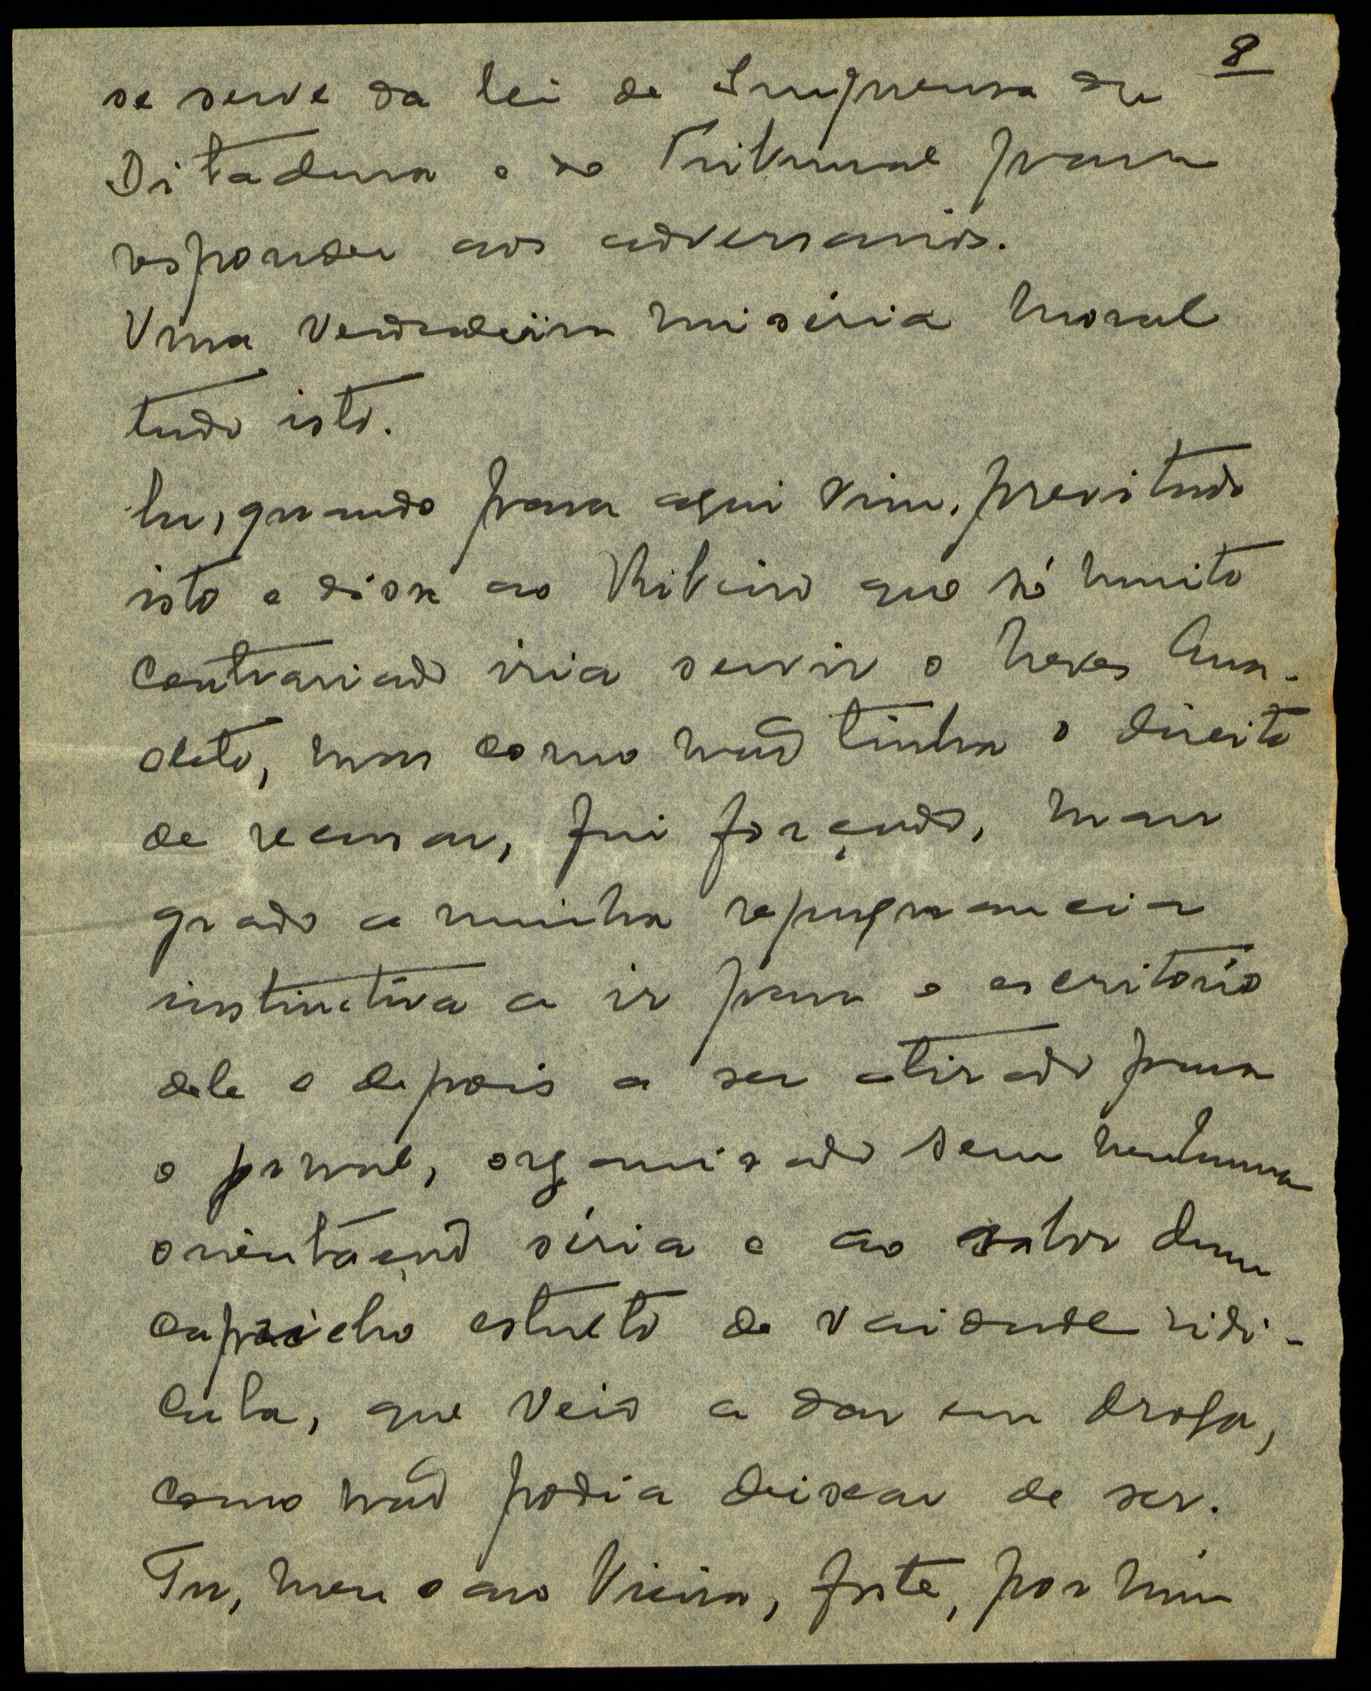 8
se serve da lei de Imprensa da
Ditadura e do Tribunal para
responder aos adversarios.
Uma verdadeira miséria moral
tudo isto.
Eu, quando para aqui vim, previ tudo
isto e disse ao Ribeiro que só muito
contrariado iria servir o Neves Ana-
cleto, mas como não tinha o direito
de recusar, fui forçado, mau
grado a minha repugnancia
instinctiva a ir para o escritorio
dele e depois a ser atirado para
o jornal, organisado sem nenhuma
orientação séria e ao sabor dum
capricho estulto de vaidade ridi-
cula, que veio a dar em droga,
como não podia deixar de ser.
Tu, meu caro Vieira, foste, por mim